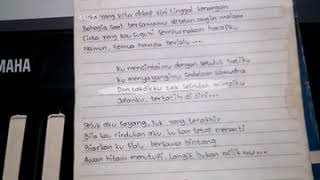 Cinta yang kita dekap kini tinggal kenangan
Bahagia saat bersamamu ditelan angin malam
Cinta yang kau suguhi sempurnakan harapku
Namun, semua hampa berlalu...
ku mencintaimu dengan setulus hatiku
ku menyayangimu sedalam samudra
Dan takdirku tak seindah mimpiku
Jalanku, tertatih di sini...
Peluk aku sayang, tuk yang terakhir
Bila kau rindukan aku, ku kan tetap menanti
Biarkan ku slalu, bersama bintang
Awan hitam menutupi, langit bukan milikku...
YAMAHA